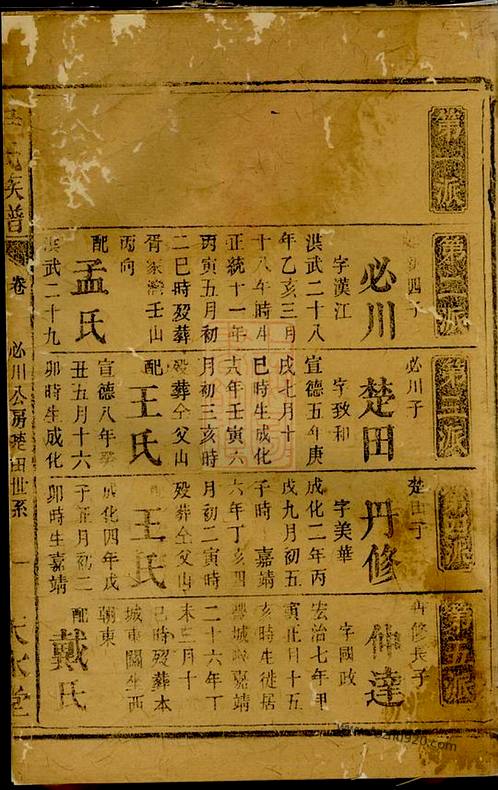 第一派
第二派
四子
必川
字漢江
洪武二十八
年乙亥三月
十八午時生
正統十一年
丙寅五月初
二巳時歿葬
胥家灣壬山
丙向
配
孟氏
洪武二十九
第三派
必川子
楚田
字致和
宣德五年庚
戌七月十
巳時生成化
六年壬寅六
月初三亥時
歿葬仝父山
配
王氏
宣德八年癸
丑五月十六
卯時生成化
第四派
楚田子
丹修
字美華
成化二年丙
戌九月初五
子時 嘉靖
六年丁亥四
月初二寅時
歿葬仝父山
配
王氏
成化四年戊
子正月初二
卯時生嘉靖
第五派
丹修長子
仲達
字國政
宏治七年甲
寅正月十五
亥時生徙居
城 嘉靖
二十六年丁
未三月十
巳時歿葬本
城東關坐西
朝東
配
戴氏
氏族譜
卷
必川公房楚田世系
一
堂
www.jiapu920.com